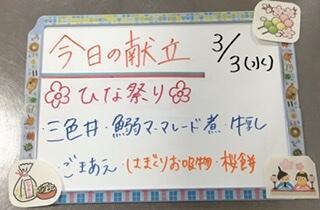 今日の献立
3/3(水)
ひな祭り
三色丼・鰯マーマレード煮・牛乳
ごまあえ・はまぐりお吸物・桜餅